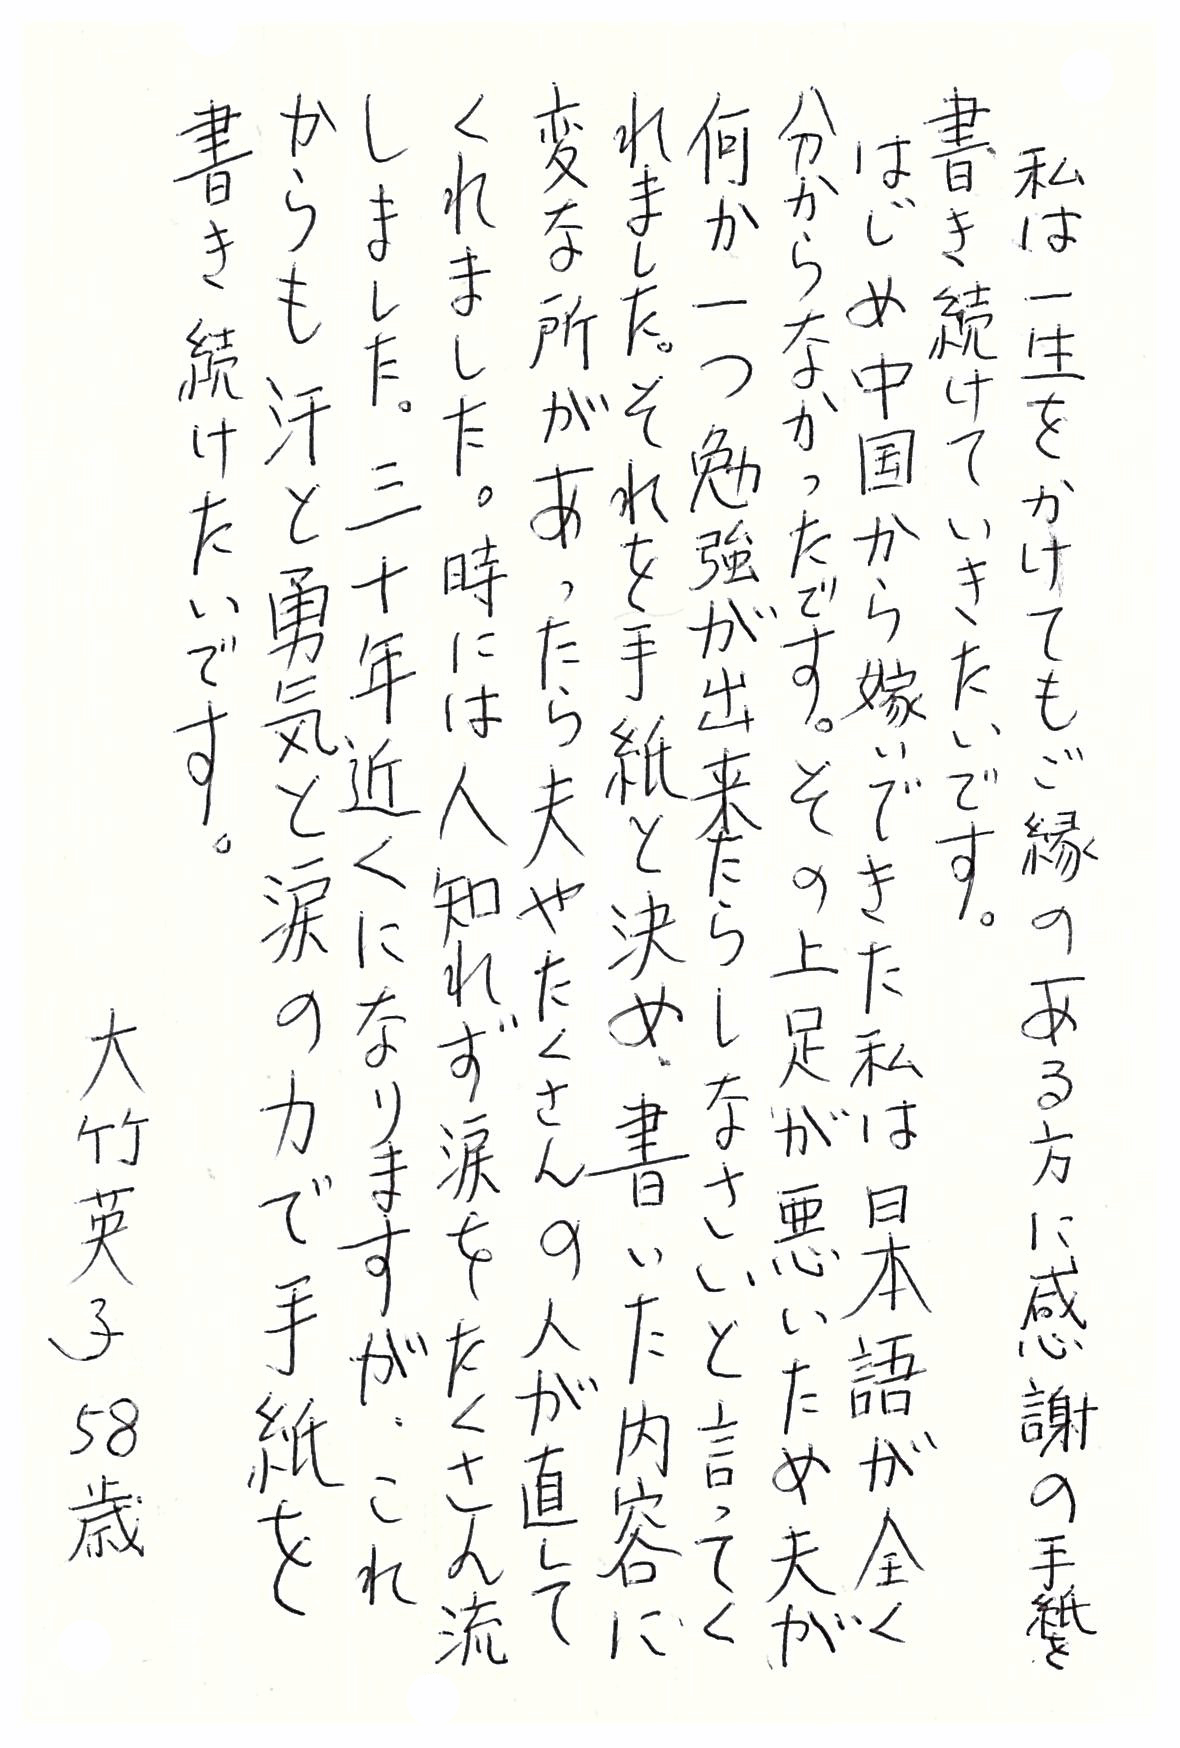 私は一生をかけてもご縁のある方に感謝の手紙を
書き続けていきたいです。
はじめ中国から嫁いできた私は日本語が全く
分からなかったです。その上足が悪いため夫が
何か一つ勉強が出来たらしなさいと言ってく
れました。それを手紙と決め、書いた内容に
変な所があったら夫やたくさんの人が直して
くれました。時には人知れず涙をたくさん流
しました。三十年近くになりますが、これ
からも汗と勇気と涙の力で手紙を
書き続けたいです。
大竹英子 58歳